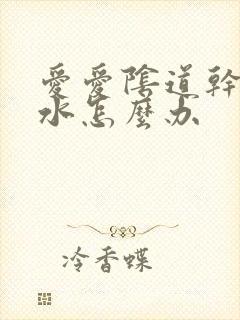 愛愛陰道幹
水怎麼办
冷香蝶